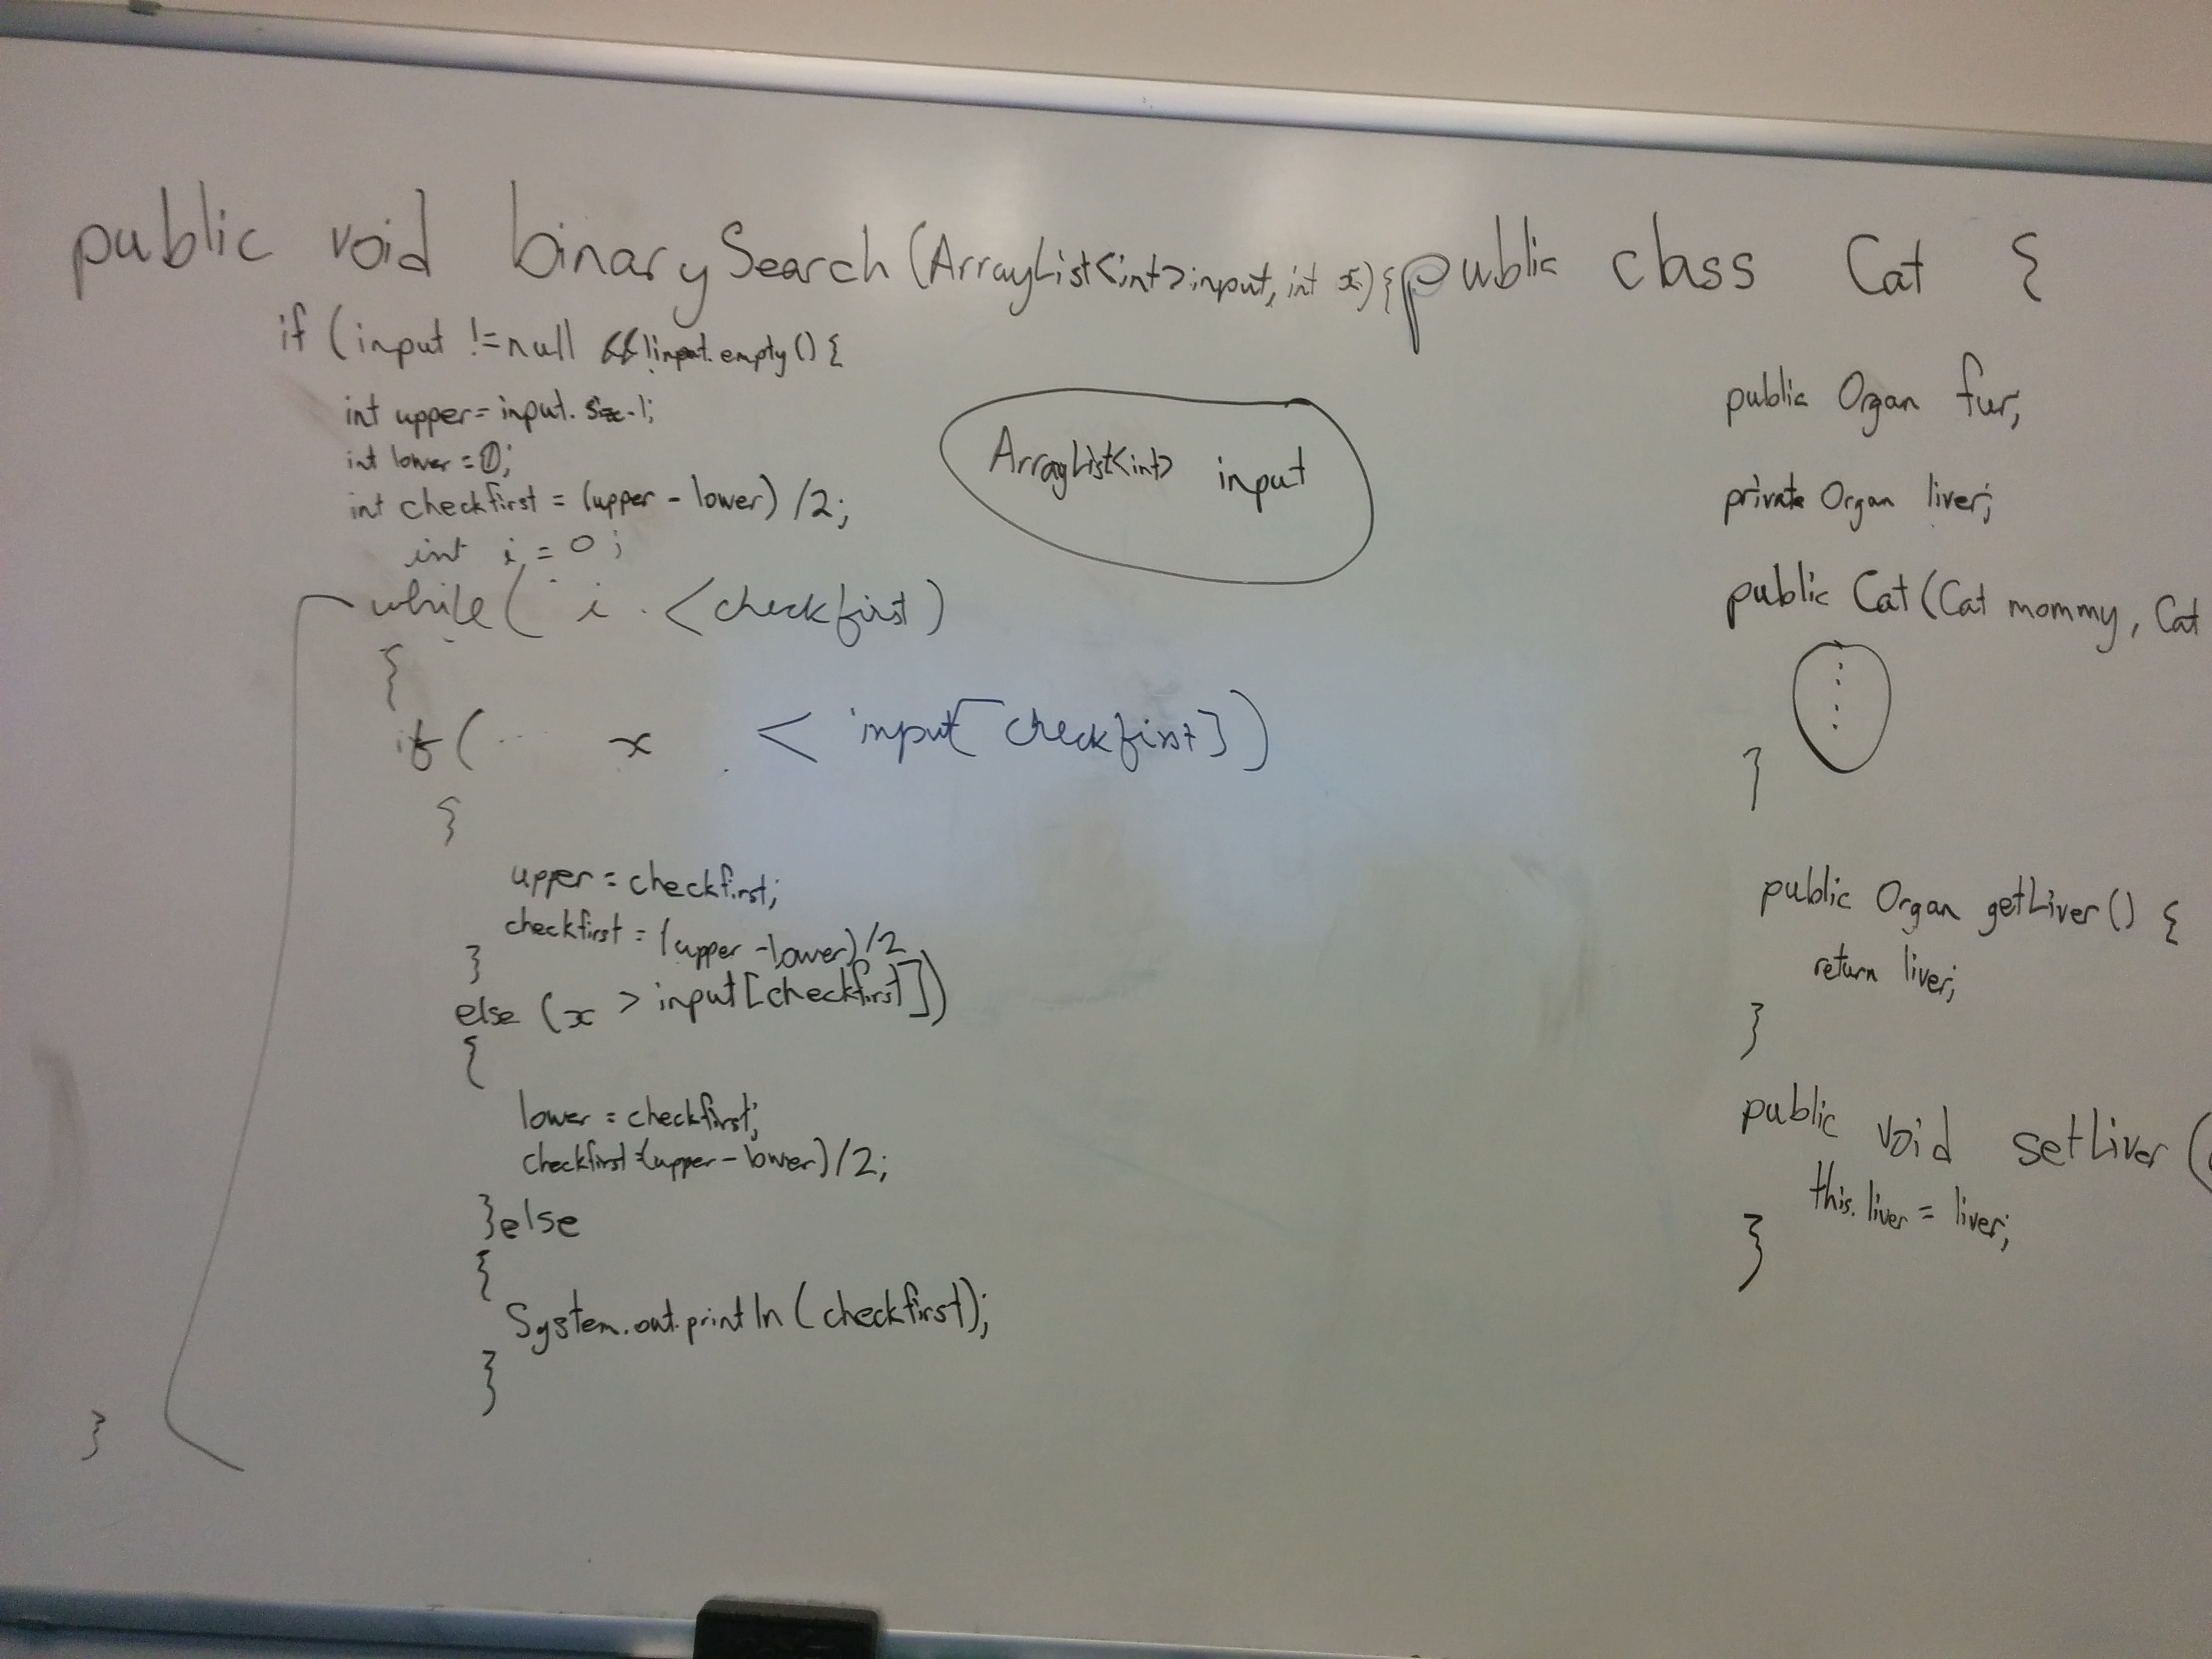 public void binarySearch(ArrayList<int> input, int x){
if (input !=null && !input.empty() {
int upper = input.size-1;
int lower = 0;
int checkfirst = (upper - lower) /2;
int i = 0;
while( i < checkfirst)
{
if( x < input[checkfirst])
{
upper = checkfirst;
checkfirst = (upper -lower)/2
}
else (x > input[checkfirst])
{
lower = checkfirst;
checkfirst=(upper-lower)/2;
}else
{
System.out.println(checkfirst);
}
}
ArrayList<int> input
public class Cat {
public Organ fur;
private Organ liver;
public Cat(Cat mommy, Cat
}
public Organ getLiver() {
return liver;
}
public void setLiver (
this.liver = liver;
}